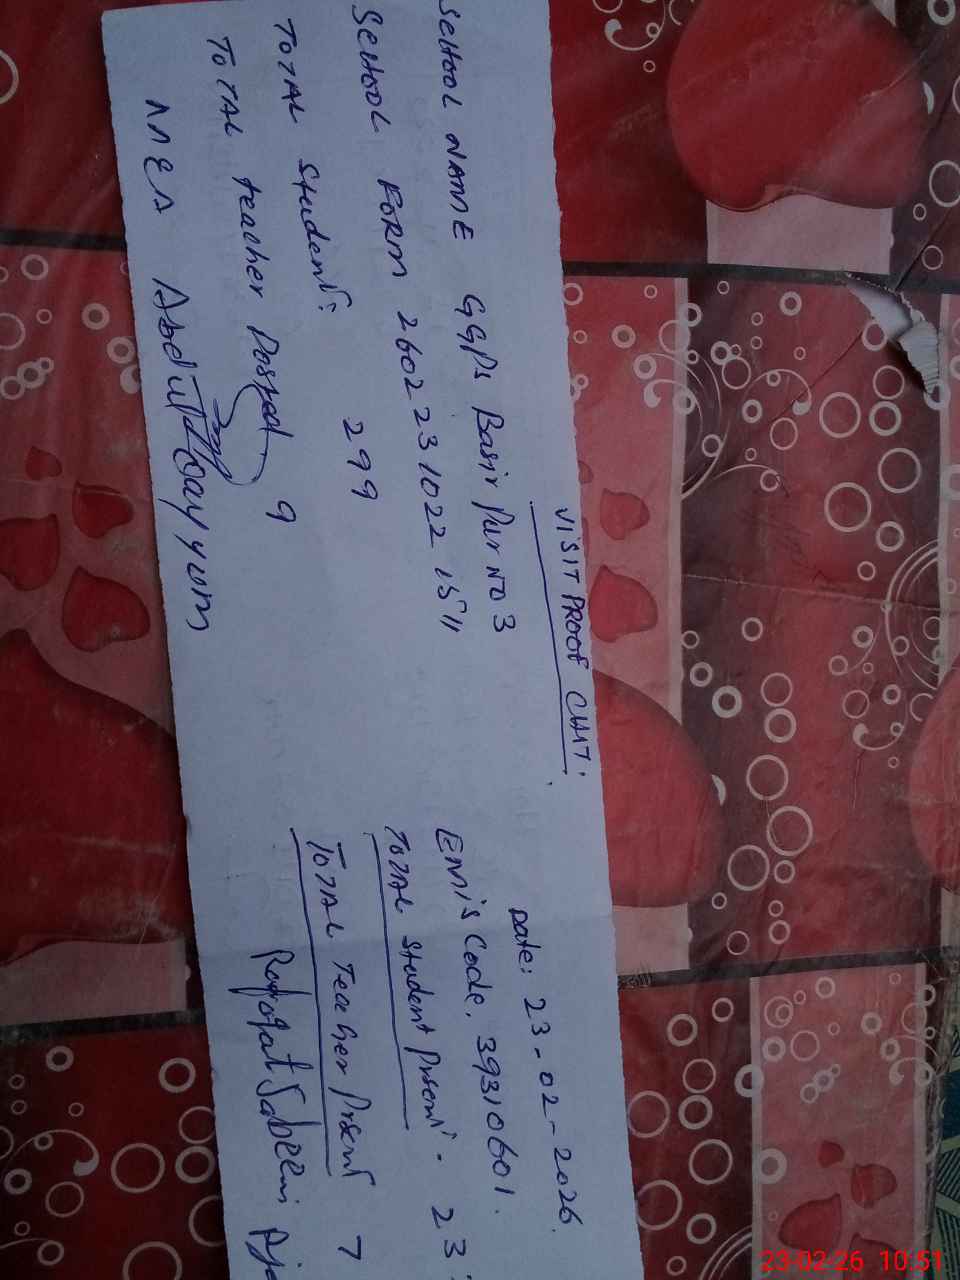 VISIT PROOF CHIT.
Date: 23-02-2026.
SCHOOL NAME GGPS Basir Pur NO 3
EMIS Code. 39310601.
SCHOOL FORM 26022310221511
TOTAL Student Present. 23
TOTAL Students: 299
TOTAL Teacher Present 7
TOTAL teacher Posted 9
MEA Abdul Qayyum
23-02-26 10:51